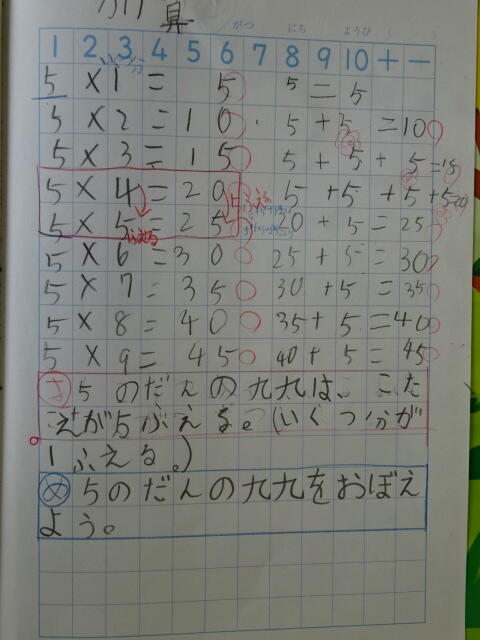 算
がつ にち ようび
1 2 3 4 5 6 7 8 9 10 + -
5 × 1 = 5 5 = 5
5 × 2 = 10 5 + 5 = 10
5 × 3 = 15 5 + 5 + 5 = 15
5 × 4 = 20 5 + 5 + 5 + 5 = 20
5 × 5 = 25 20 + 5 = 25
ふえる
5 × 6 = 30 25 + 5 = 30
5 × 7 = 35 30 + 5 = 35
5 × 8 = 40 35 + 5 = 40
5 × 9 = 45 40 + 5 = 45
ま 5のだんの九九は、こた
えが5ぶえる。(いくつ分が
1ふえる。)
め 5のだんの九九をおぼえ
よう。